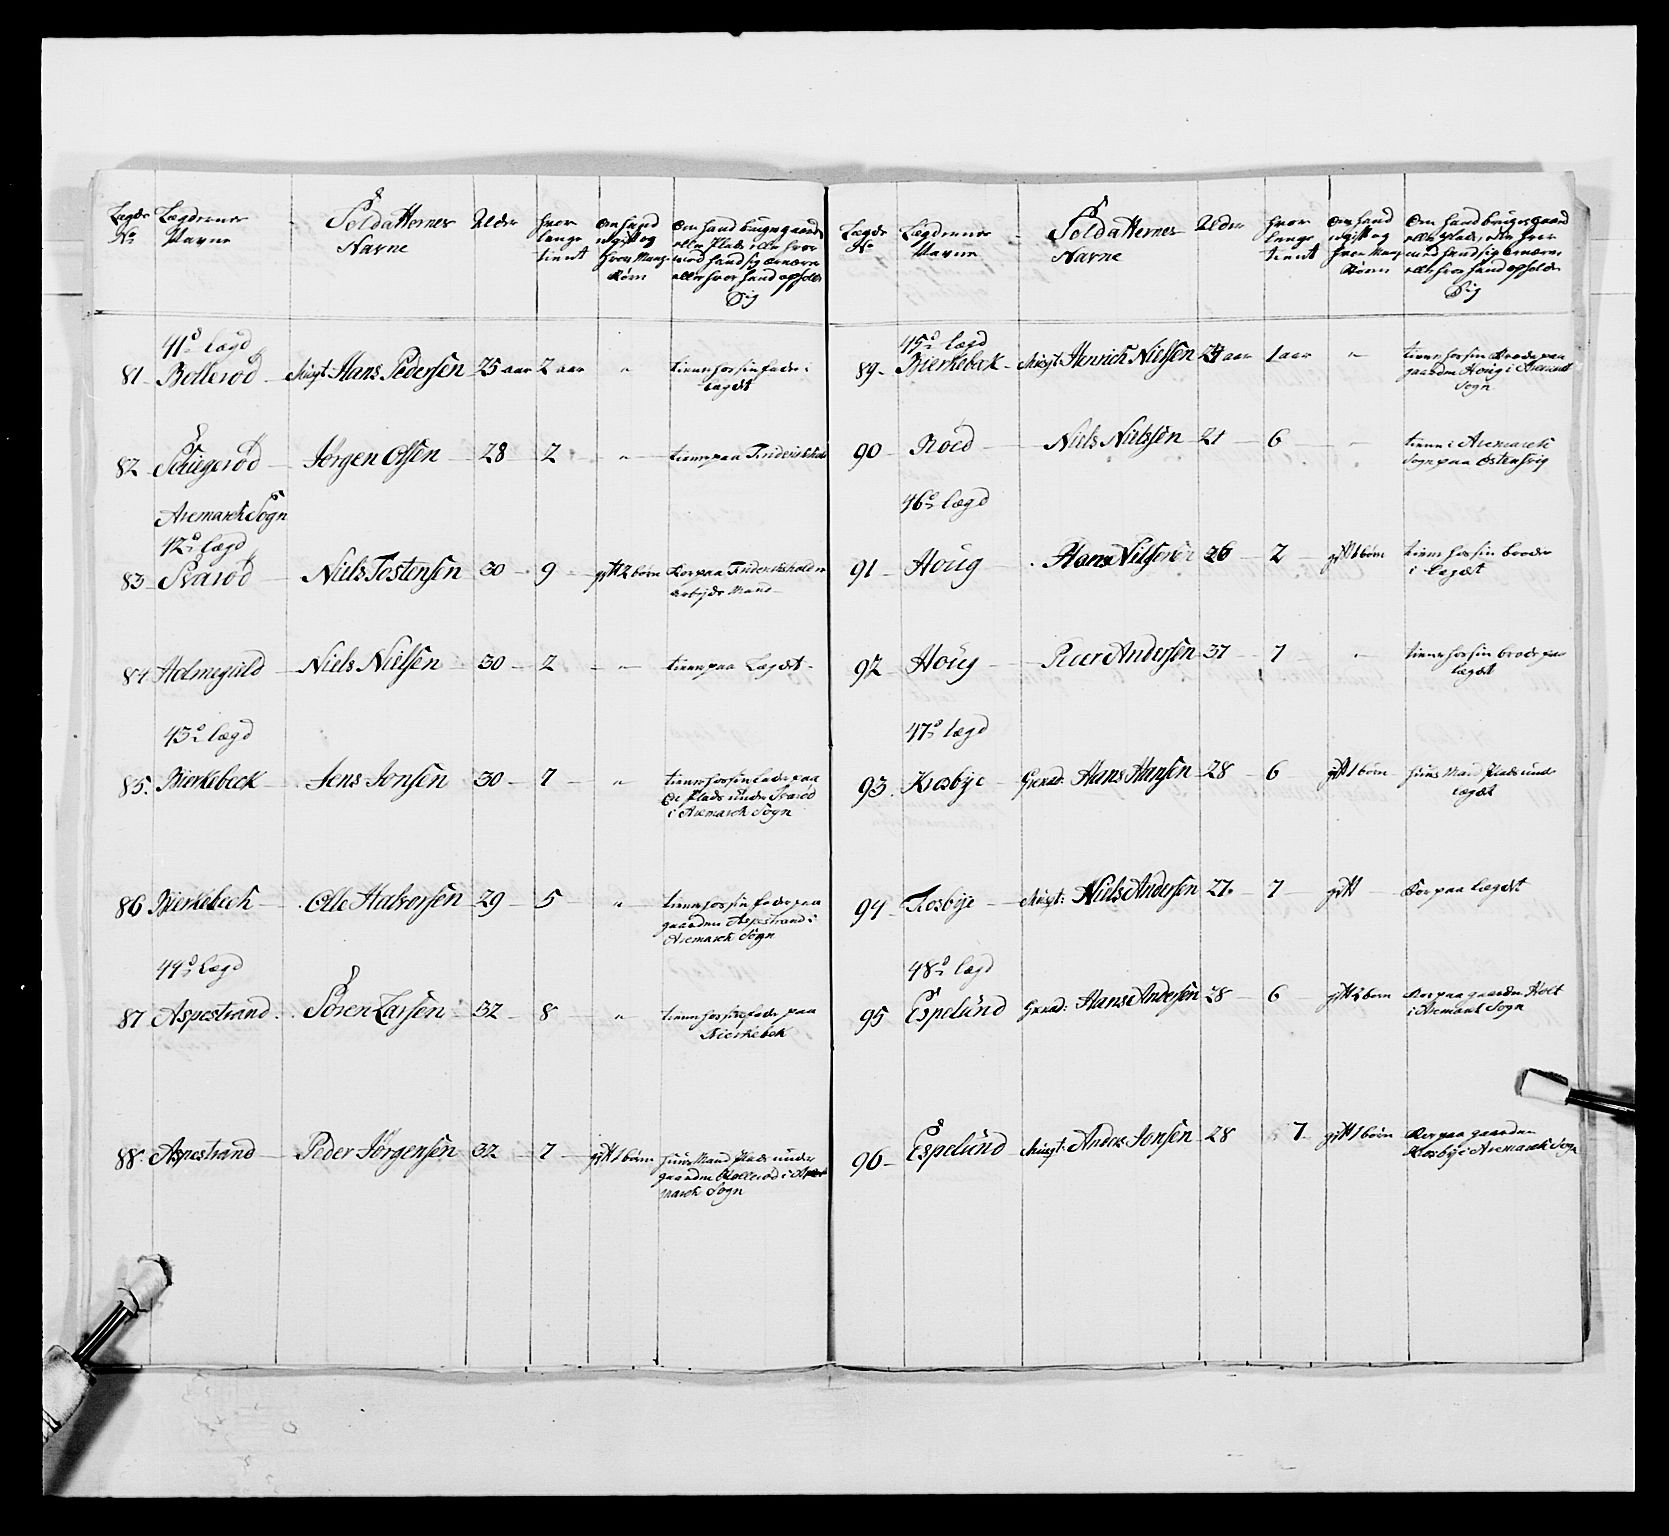 Lægds No
Lægdernes Navne
Soldatternes Navne
Alder
hvor lenge tient
Om hand er gift og hvor Mang Børn
Om hand bruger gaard eller Plads, eller hvor med hand sig ernærer eller hvor hand opholder Sig
41de lægd
81 Bollerød Musqt: Hans Pedersen 25 aar 2 aar " tiener hos sin fader i
lægdet
82 Schiegerød Jørgen Olsen 28 2 " tiener paa Friderichshald
Aremarck Sogn
42de lægd
83 Svarød Niels Tostensen 30 9 gift 2 børn Boer paa Friderichshald er
arbejds Mand
84 Holmegield Niels Nielsen 30 2 " tiener paa Lægdet
43de lægd
85. Bierkebeck Jens Jonsen 30 7 " tiener hos sin fader paa
Et Plads under Svarød
i Aremarck Sogn
86 Bierkebeck Olle Halvorsen 29 5 " tiener hos sin fader paa
gaarden Aspestrand i
Aremarck Sogn
44de lægd
87 Aspestrand Søren Larsen 32 8 " tiener hos sin fader paa
Bierkebek
88. Aspestrand Peder Jørgensen 32 7 gift 1 børn huus Mand Plads under
gaarden Bollerød i Are
marck Sogn
Lægds No
Lægdernes Navne
Soldatternes Navne
Alder
hvor lenge tient
Om hand er gift og hvor Mang Børn
Om hand bruger gaard eller Plads, eller hvor med hand sig ernærer, eller hvor hand opholder Sig
45de lægd
89 Bierkebeck Musqt: Henrich Nielsen aar 1 aar " tiener hos sin Broder paa
gaarden Houg i Aremarck
Sogn
90 Roed Niels Nielssen 21 6 " tiener i Aremarck
Sogn paa Østensvig
46de lægd
91 Houg Hans Nilssen 26 2 gift 1 børn tiener hos sin broder
i lægdet
92 Houg Andersen 37 7 " tiener hos sin broder paa
lægdet
47de lægd
93. Krosbye Grenad: Hans Hansen 28 6 gift 1 børn huus Mand Plads under
lægdet
94 Krosbye Musqt: Niels Andersen 27. 7 gift Boer paa lægdet
48de lægd
95 Espelund Grenad: Hans Andersen 28 6 gift 2 børn Boer paa gaarden Holt
i Aremarck Sogn
96 Espelund Musqt: Anders Jonsen 28 7 gift 1 børn Boer paa gaarden
Krosby i Aremarck Sogn